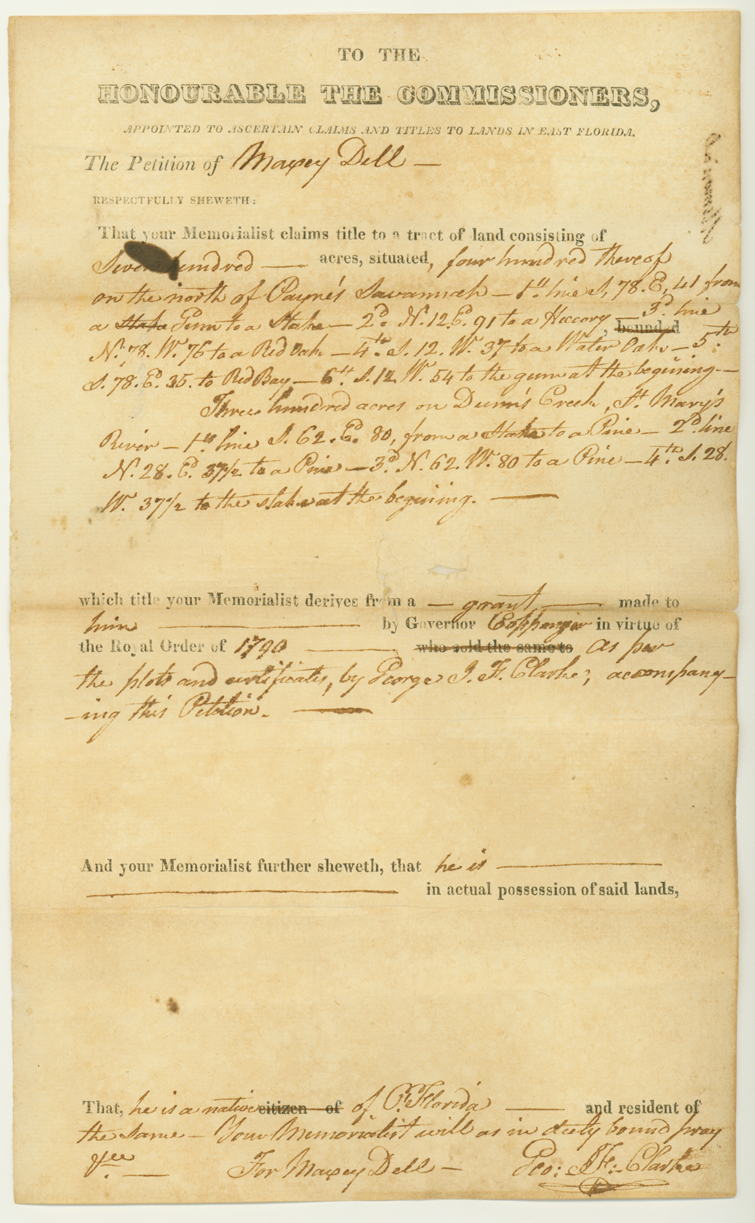 TO THE
HONOURABLE THE COMMISSIONERS,
APPOINTED TO ASCERTAIN CLAIMS AND TITLES TO LANDS IN EAST FLORIDA.
The Petition of Maxey Dell —
RESPECTFULLY SHEWETH:
That your Memorialist claims title to a tract of land consisting of
Seven hundred — acres, situated, four hundred thereof
on the north of Payne's Savannah — 1st. line S, 78. E, 41 from
a Stake Gum to a Stake — 2d. N. 12. E. 91 to a Hiccory, bounded — 3d line
N. 78. W. 76 to a Red Oak — 4th S. 12. W. 37 to a Water Oak — 5th
S. 78. E. 35. to Red Bay — 6th S. 12 W. 54 to the gum at the begining —
Three hundred acres on Dunn's Creek, St. Mary's
River — 1st line S. 62. E. 80, from a Stake to a Pine — 2d line
N. 28. E. 37½ to a Pine — 3d N. 62. W. 80 to a Pine — 4th S. 28.
W. 37½ to the stake at the begining. —
which title your Memorialist derives from a — grant — made to
him — by Governor Coppinger in virtue of
the Royal Order of 1790 — , who sold the same to as per
the plots and certificates, by George J. F. Clarke, accompany-
-ing this Petition. —
And your Memorialist further sheweth, that he is —
— in actual possession of said lands,
That, he is a native citizen of of E. Florida — and resident of
the same — Your Memorialist will as in duty bound pray
&ca. — For Maxey Dell — Geo: J. F. Clarke